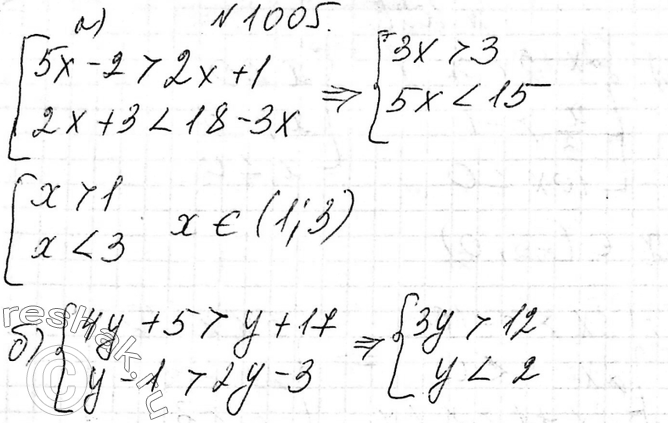 а) №1005.
{5x-2>2x+1 ⇒ {3x>3
{2x+3<18-3x ⇒ {5x<15
{x>1
{x<3 x∈(1;3)
б) {4y+5>y+17 ⇒ {3y>12
{y-1>2y-3 ⇒ {y<2
reshak.ru
©